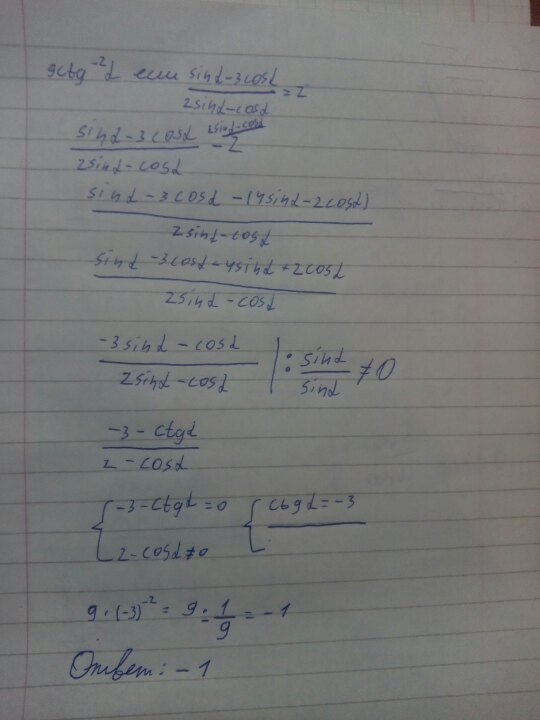 9ctg⁻²α если (sinα-3cosα)/(2sinα-cosα) = 2
(sinα-3cosα)/(2sinα-cosα) - 2
(sinα-3cosα-(4sinα-2cosα))/(2sinα-cosα)
(sinα-3cosα-4sinα+2cosα)/(2sinα-cosα)
(-3sinα-cosα)/(2sinα-cosα) | : sinα/sinα ≠ 0
(-3-ctgα)/(2-cosα)
{ -3-ctgα=0 { ctgα=-3
2-cosα≠0
9·(-3)⁻² = 9·1/9 = -1
Ответ: -1